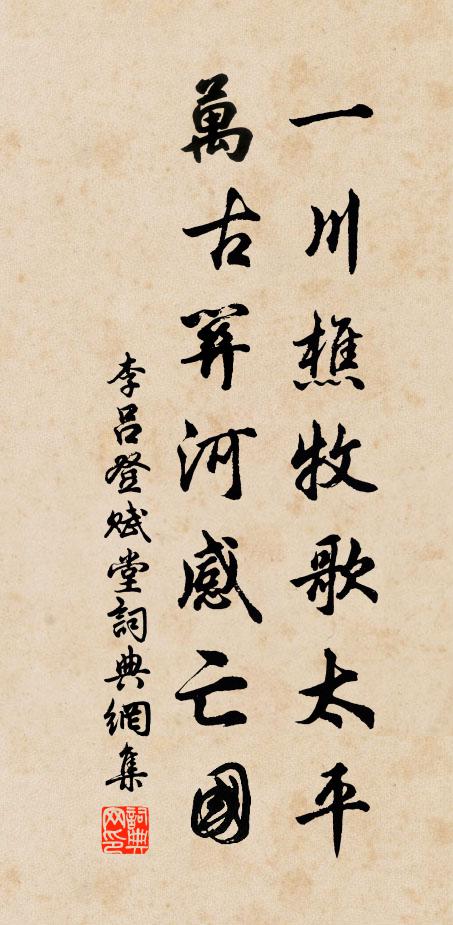 一川樵牧歌太平
萬古關河感亡國
李呂登賦堂詞典網集
詞典
网印